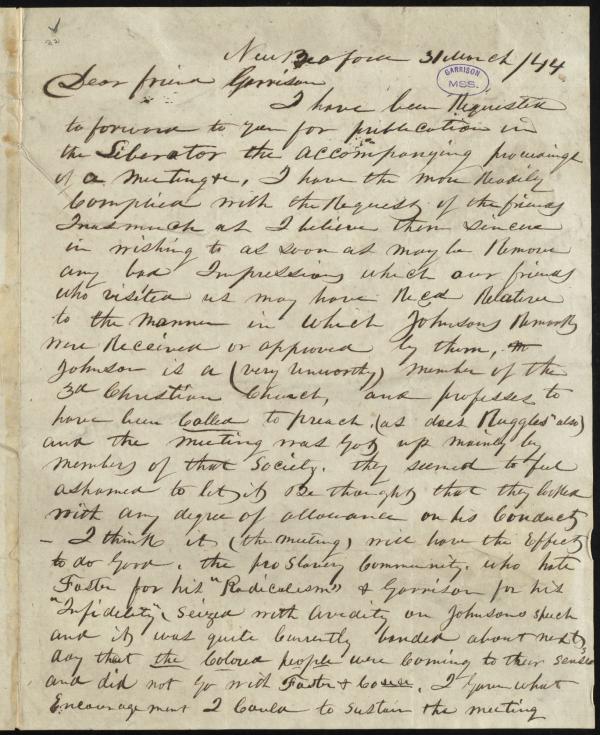 New Bedford 31 March /44
GARRISON
MSS.
Dear friend Garrison
I have been Requested
to forward to you for publication in
the Liberator the accompanying proceedings
of a meeting &c, I have the more Readily
Complied with the Request of the friends
Inasmuch as I believe them Sincere
in wishing to as soon as may be Remove
any bad Impressions which our friends
who visited us may have Recd Relative
to the Manner in which Johnsons Remarks
were Received or approved by them,
Johnson is a (very unworthy) member of the
3d Christian Church, and professes to
have been Called to preach, (as does Ruggles also)
and the meeting was got up mainly by
members of that Society. they seemed to feel
ashamed to let it be thought that they looked
with any degree of allowance on his Conduct
– I think it (the meeting) will have the Effect
to do Good. the proSlavery Community, who hate
Foster for his "Radicalism" & Garrison for his
"Infidelity", Seized with avidity on Johnsons speech
and it was quite Currently bandied about next
day that the Colored people were Coming to their senses
and did not Go with Foster & Co. I Gave what
Encouragement I Could to sustain the meeting